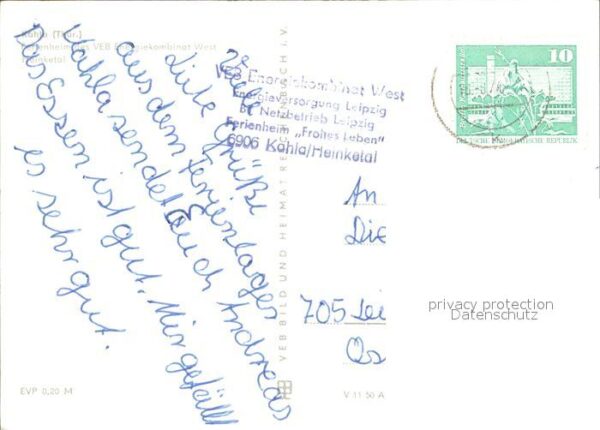 Kahla (Thür.)
Ferienheim des VEB Energiekombinat West
Heinketal
Viele Grüße
aus dem Ferienlager
Kahla sendet Euch Andreas
Das Essen ist gut. Mir gefällt
es sehr gut.
VEB Energiekombinat West
Energieversorgung Leipzig
BT Netzbetrieb Leipzig
Ferienheim „Frohes Leben"
6906 Kahla/Heinketal
VEB BILD UND HEIMAT REICHENBACH I. V.
10
DEUTSCHE DEMOKRATISCHE REPUBLIK
An
Die
705 Lei
Os
privacy protection
Datenschutz
EVP 0,20 M
V 11 50 A